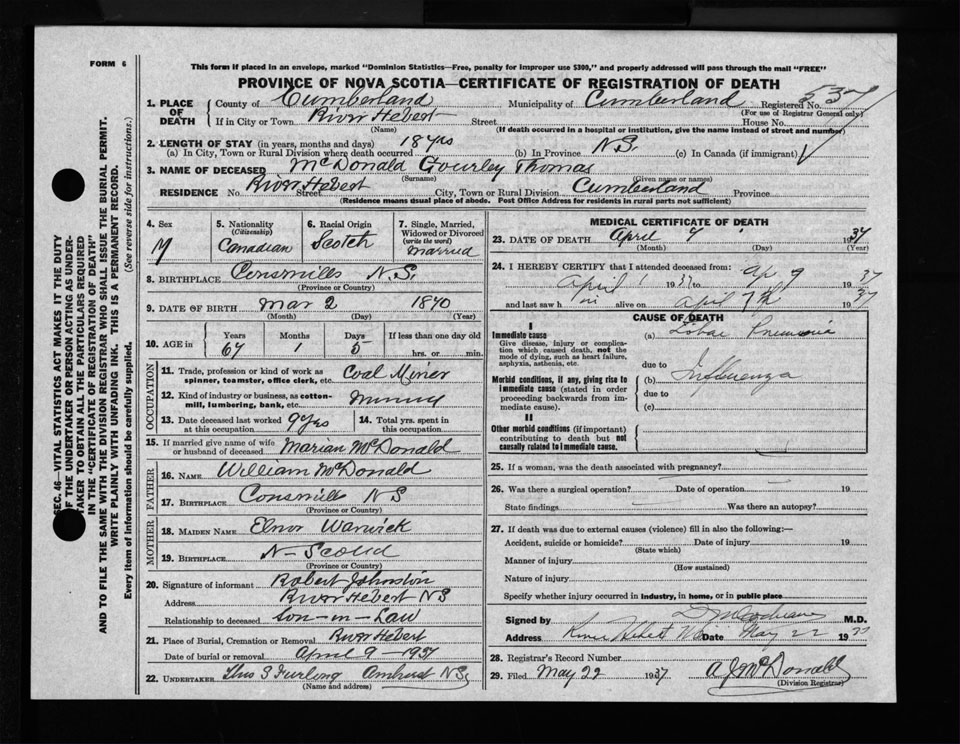 FORM 6
This form if placed in an envelope, marked "Dominion Statistics—Free, penalty for improper use $300," and properly addressed will pass through the mail "FREE"
PROVINCE OF NOVA SCOTIA—CERTIFICATE OF REGISTRATION OF DEATH
SEC. 46—VITAL STATISTICS ACT MAKES IT THE DUTY
OF THE UNDERTAKER OR PERSON ACTING AS UNDER-
TAKER TO OBTAIN ALL THE PARTICULARS REQUIRED
IN THE "CERTIFICATE OF REGISTRATION OF DEATH"
AND TO FILE THE SAME WITH THE DIVISION REGISTRAR WHO SHALL ISSUE THE BURIAL PERMIT.
WRITE PLAINLY WITH UNFADING INK. THIS IS A PERMANENT RECORD.
Every item of information should be carefully supplied. (See reverse side for instructions.)
1. PLACE OF DEATH County of Cumberland Municipality of Cumberland Registered No. 537
(For use of Registrar General only)
If in City or Town River Hebert Street House No.
(Name) (If death occurred in a hospital or institution, give the name instead of street and number)
2. LENGTH OF STAY (in years, months and days) 18 yrs
(a) In City, Town or Rural Division where death occurred (b) In Province N.S. (c) In Canada (if immigrant)
3. NAME OF DECEASED McDonald Gourley Thomas
(Surname) (Given name or names)
RESIDENCE No. River Hebert Street City, Town or Rural Division Cumberland Province
(Residence means usual place of abode. Post Office Address for residents in rural parts not sufficient)
4. Sex M
5. Nationality (Citizenship) Canadian
6. Racial Origin Scotch
7. Single, Married, Widowed or Divorced (write the word) Married
8. BIRTHPLACE Consmills N.S.
(Province or Country)
9. DATE OF BIRTH Mar 2 1870
(Month) (Day) (Year)
10. AGE in Years 67 Months 1 Days 5 If less than one day old hrs. or min.
OCCUPATION
11. Trade, profession or kind of work as spinner, teamster, office clerk, etc. Coal Miner
12. Kind of industry or business, as cotton-mill, lumbering, bank, etc. Mining
13. Date deceased last worked at this occupation 9 yrs 14. Total yrs. spent in this occupation
15. If married give name of wife or husband of deceased Marian McDonald
FATHER
16. NAME William McDonald
17. BIRTHPLACE Consmills NS
(Province or Country)
MOTHER
18. MAIDEN NAME Elnor Warwick
19. BIRTHPLACE N-Scotia
(Province or Country)
20. Signature of informant Robert Johnston
Address River Hebert NS
Relationship to deceased Son-in-Law
21. Place of Burial, Cremation or Removal River Hebert
Date of burial or removal April 9 - 1937
22. UNDERTAKER Thos S Furlong Amherst NS
(Name and address)
MEDICAL CERTIFICATE OF DEATH
23. DATE OF DEATH April 7 1937
(Month) (Day) (Year)
24. I HEREBY CERTIFY that I attended deceased from:
April 1 1937 to Ap 9 1937
and last saw him alive on April 7th 1937
CAUSE OF DEATH
I
Immediate cause
Give disease, injury, or complication which caused death, not the mode of dying, such as heart failure, asphyxia, asthenia, etc.
(a) Lobar Pneumonia
due to
Morbid conditions, if any, giving rise to immediate cause (stated in order proceeding backwards from immediate cause).
(b) Influenza
due to
(c)
II
Other morbid conditions (if important) contributing to death but not causally related to immediate cause.
25. If a woman, was the death associated with pregnancy?
26. Was there a surgical operation? Date of operation 19
State findings Was there an autopsy?
27. If death was due to external causes (violence) fill in also the following:—
Accident, suicide or homicide? Date of injury 19
(State which)
Manner of injury
(How sustained)
Nature of injury
Specify whether injury occurred in industry, in home, or in public place
Signed by Cochrane M.D.
Address River Hebert Date May 22 1937
28. Registrar's Record Number
29. Filed May 22 1937 A J McDonald
(Division Registrar)